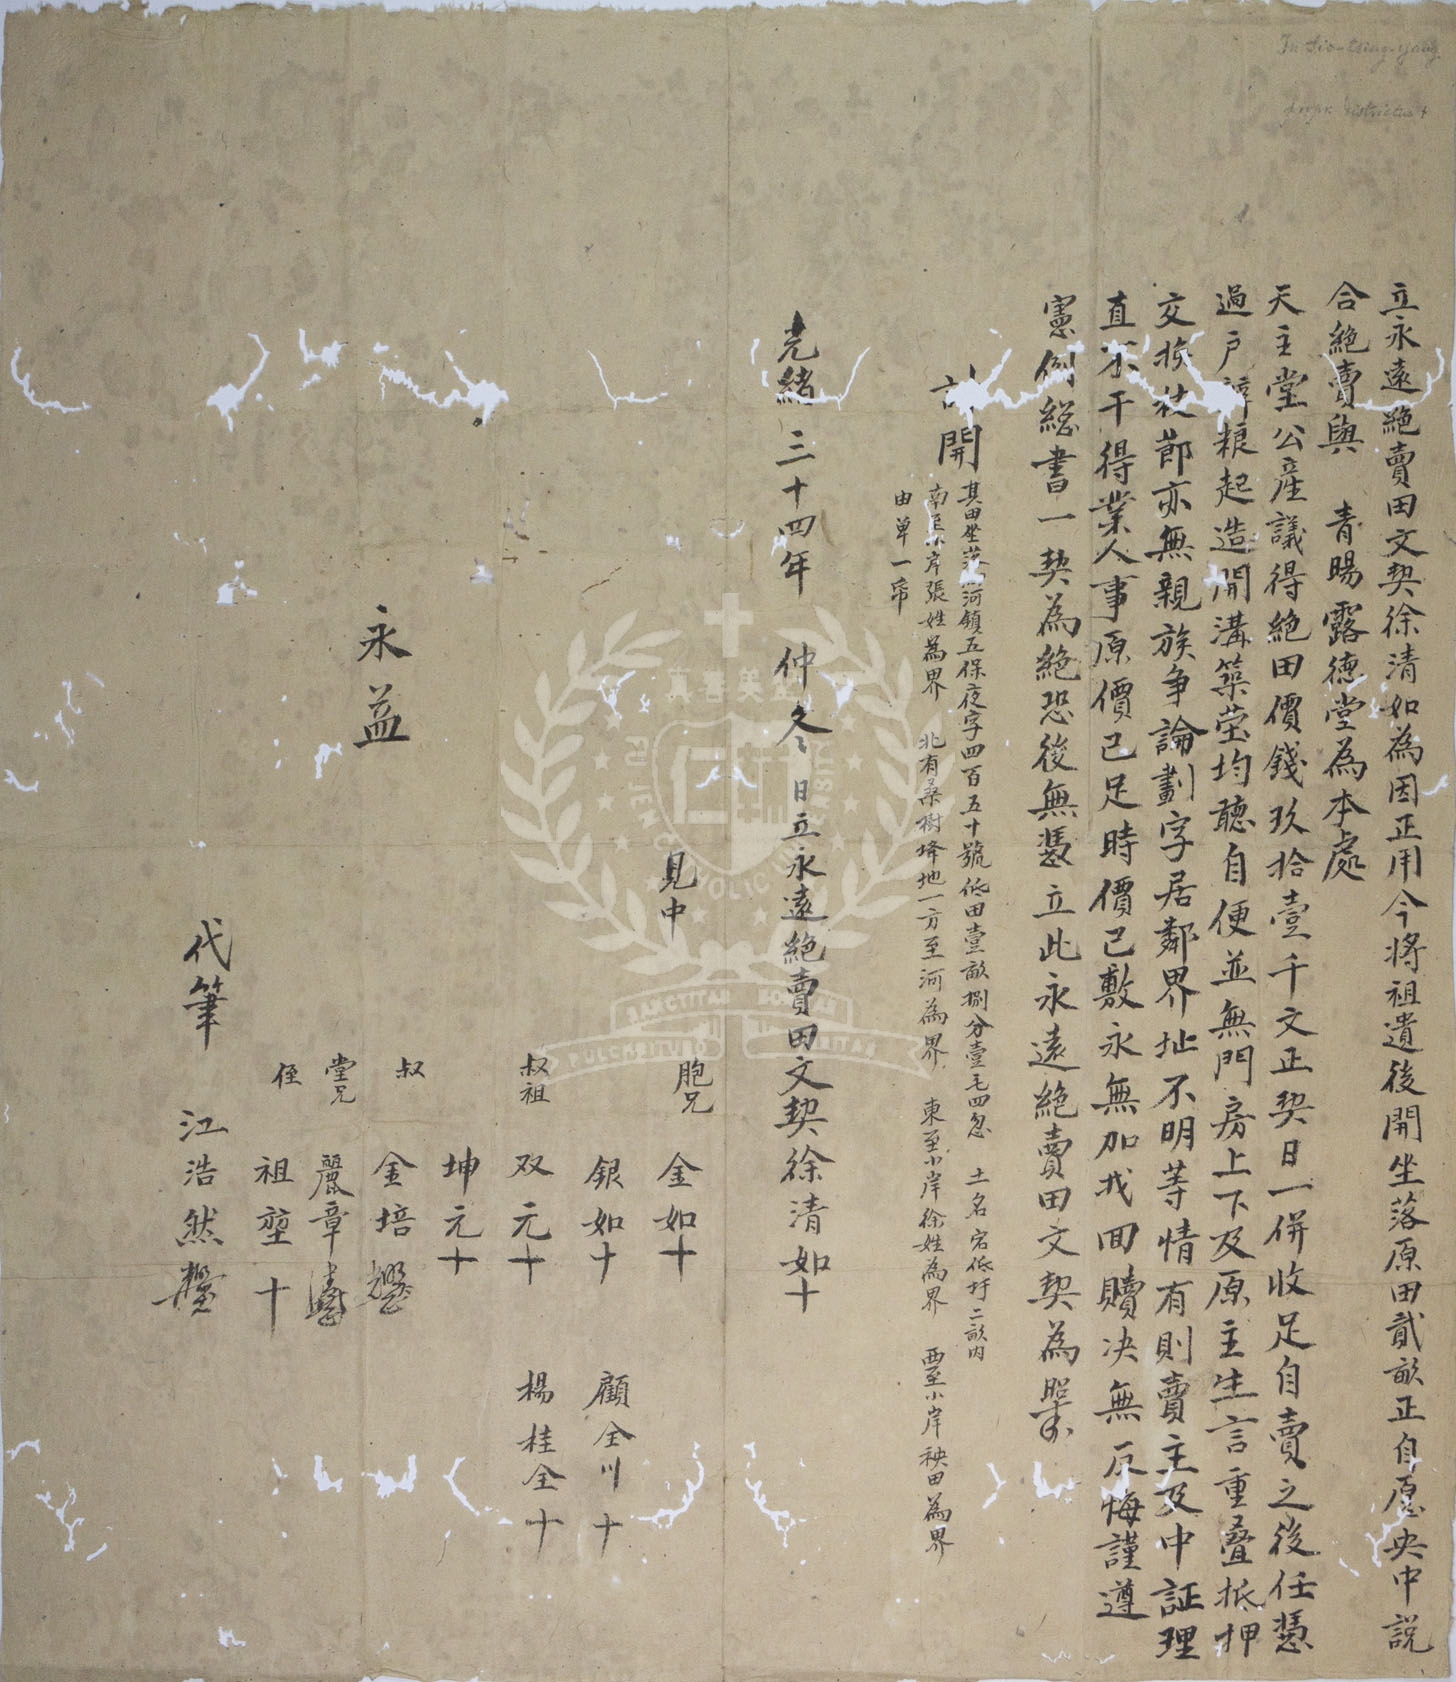 立永遠絕賣田文契徐清如為因正用今將祖遺後開坐落原田貳畝正自愿央中説
合絕賣與 青暘露德堂為本處
天主堂公產議得絕田價錢玖拾壹千文正契日一併收足自賣之後任憑
過戶粮起造開溝築塋均聽自便並無門房上下及原主生言重叠抵押
交節亦無親族爭論劃字居鄰界址不明等情有則賣主及中証理
直不干得業人事原價已足時價已敷永無加找回贖決無反悔謹遵
憲例総書一契為絕恐後無憑立此永遠絕賣田文契為照
計開 其田坐落河鎮五保夜字四百五十號低田壹畝捌分壹毛四忽 土名宕低圩二畝內
南岸張姓為界 北有桑樹埄地一方至河為界 東至小岸徐姓為界 西至小岸秧田為界
由单一帋
光緒三十四年 仲冬 日立永遠絕賣田文契徐清如十
見中
胞兄 金如十
銀如十 顧全川十
叔祖 双元十 楊桂全十
坤元十
叔 金培
堂兄 麗章
侄 祖堃十
代筆 江浩然
永益
In Sio-tsing-yang
REN CATHOLIC
SANCTITAS BONITAS
PULCHRITUDO VERITAS